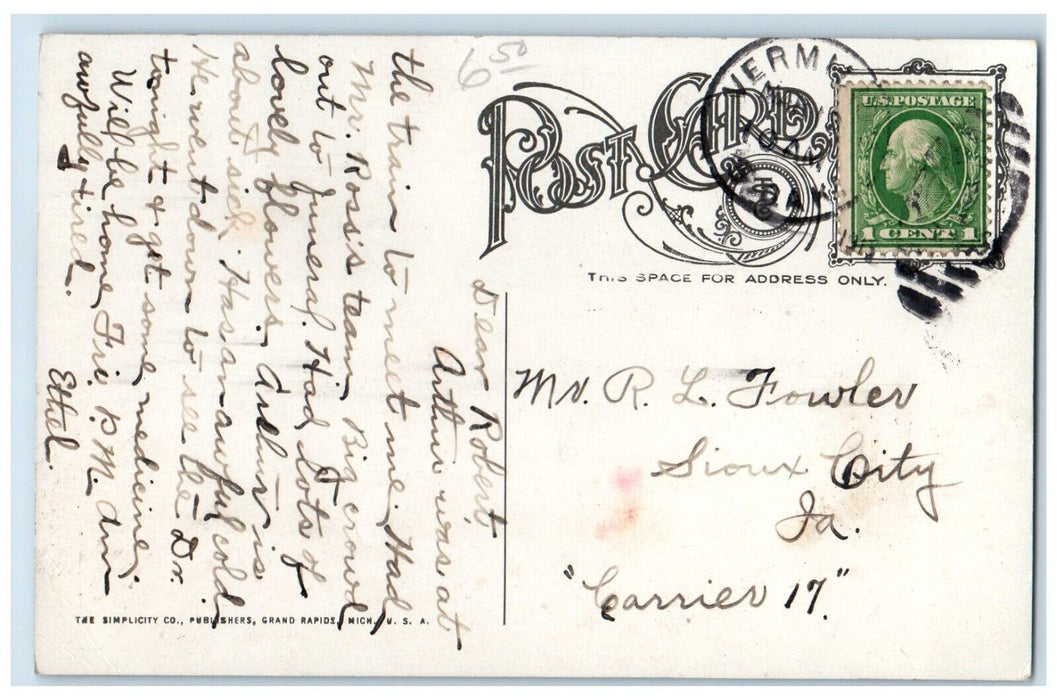 6 50
POST CARD
U.S. POSTAGE
1 CENT 1
THIS SPACE FOR ADDRESS ONLY.
Mr. R. L. Fowler
Sioux City
Ia.
"Carrier 17"
Dear Robert
Arthur was at
the train to meet me. Had
Mr. Ross's team. Big crowd
out to funeral. Had lots of
lovely flowers. Arthur is
about sick. Has an awful cold.
He went down to see the Dr.
tonight & get some medicine.
Will be home Fri P.M. Am
awfully tired.
Ethel.
THE SIMPLICITY CO., PUBLISHERS, GRAND RAPIDS, MICH., U. S. A.